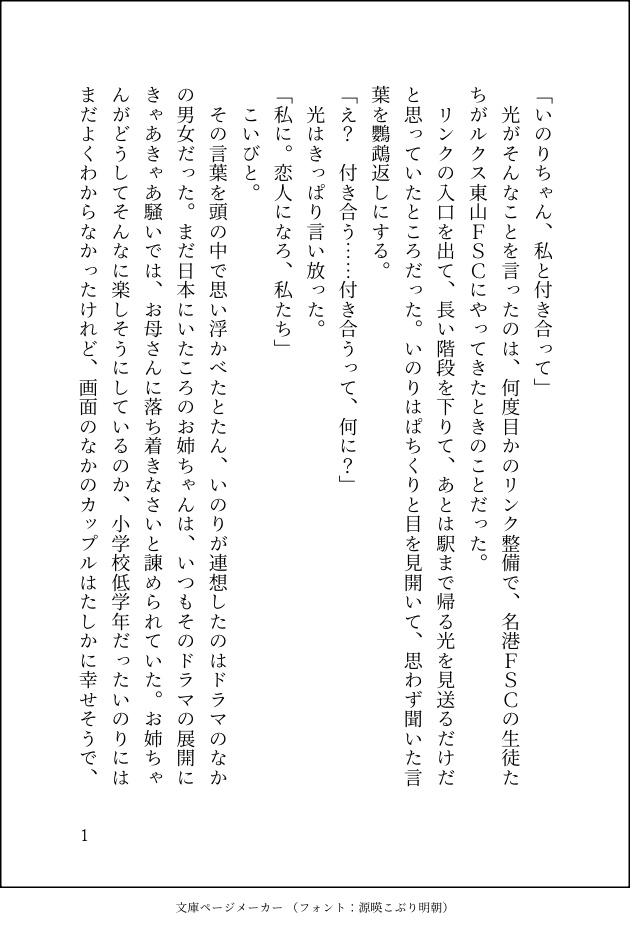 「いのりちゃん、私と付き合って」
　光がそんなことを言ったのは、何度目かのリンク整備で、名港ＦＳＣの生徒た
ちがルクス東山ＦＳＣにやってきたときのことだった。
　リンクの入口を出て、長い階段を下りて、あとは駅まで帰る光を見送るだけだ
と思っていたところだった。いのりはぱちくりと目を見開いて、思わず聞いた言
葉を鸚鵡返しにする。
「え？　付き合う……付き合うって、何に？」
　光はきっぱり言い放った。
「私に。恋人になろ、私たち」
　こいびと。
　その言葉を頭の中で思い浮かべたとたん、いのりが連想したのはドラマのなか
の男女だった。まだ日本にいたころのお姉ちゃんは、いつもそのドラマの展開に
きゃあきゃあ騒いでは、お母さんに落ち着きなさいと諫められていた。お姉ちゃ
んがどうしてそんなに楽しそうにしているのか、小学校低学年だったいのりには
まだよくわからなかったけれど、画面のなかのカップルはたしかに幸せそうで、
1
文庫ページメーカー（フォント：源暎こぶり明朝）